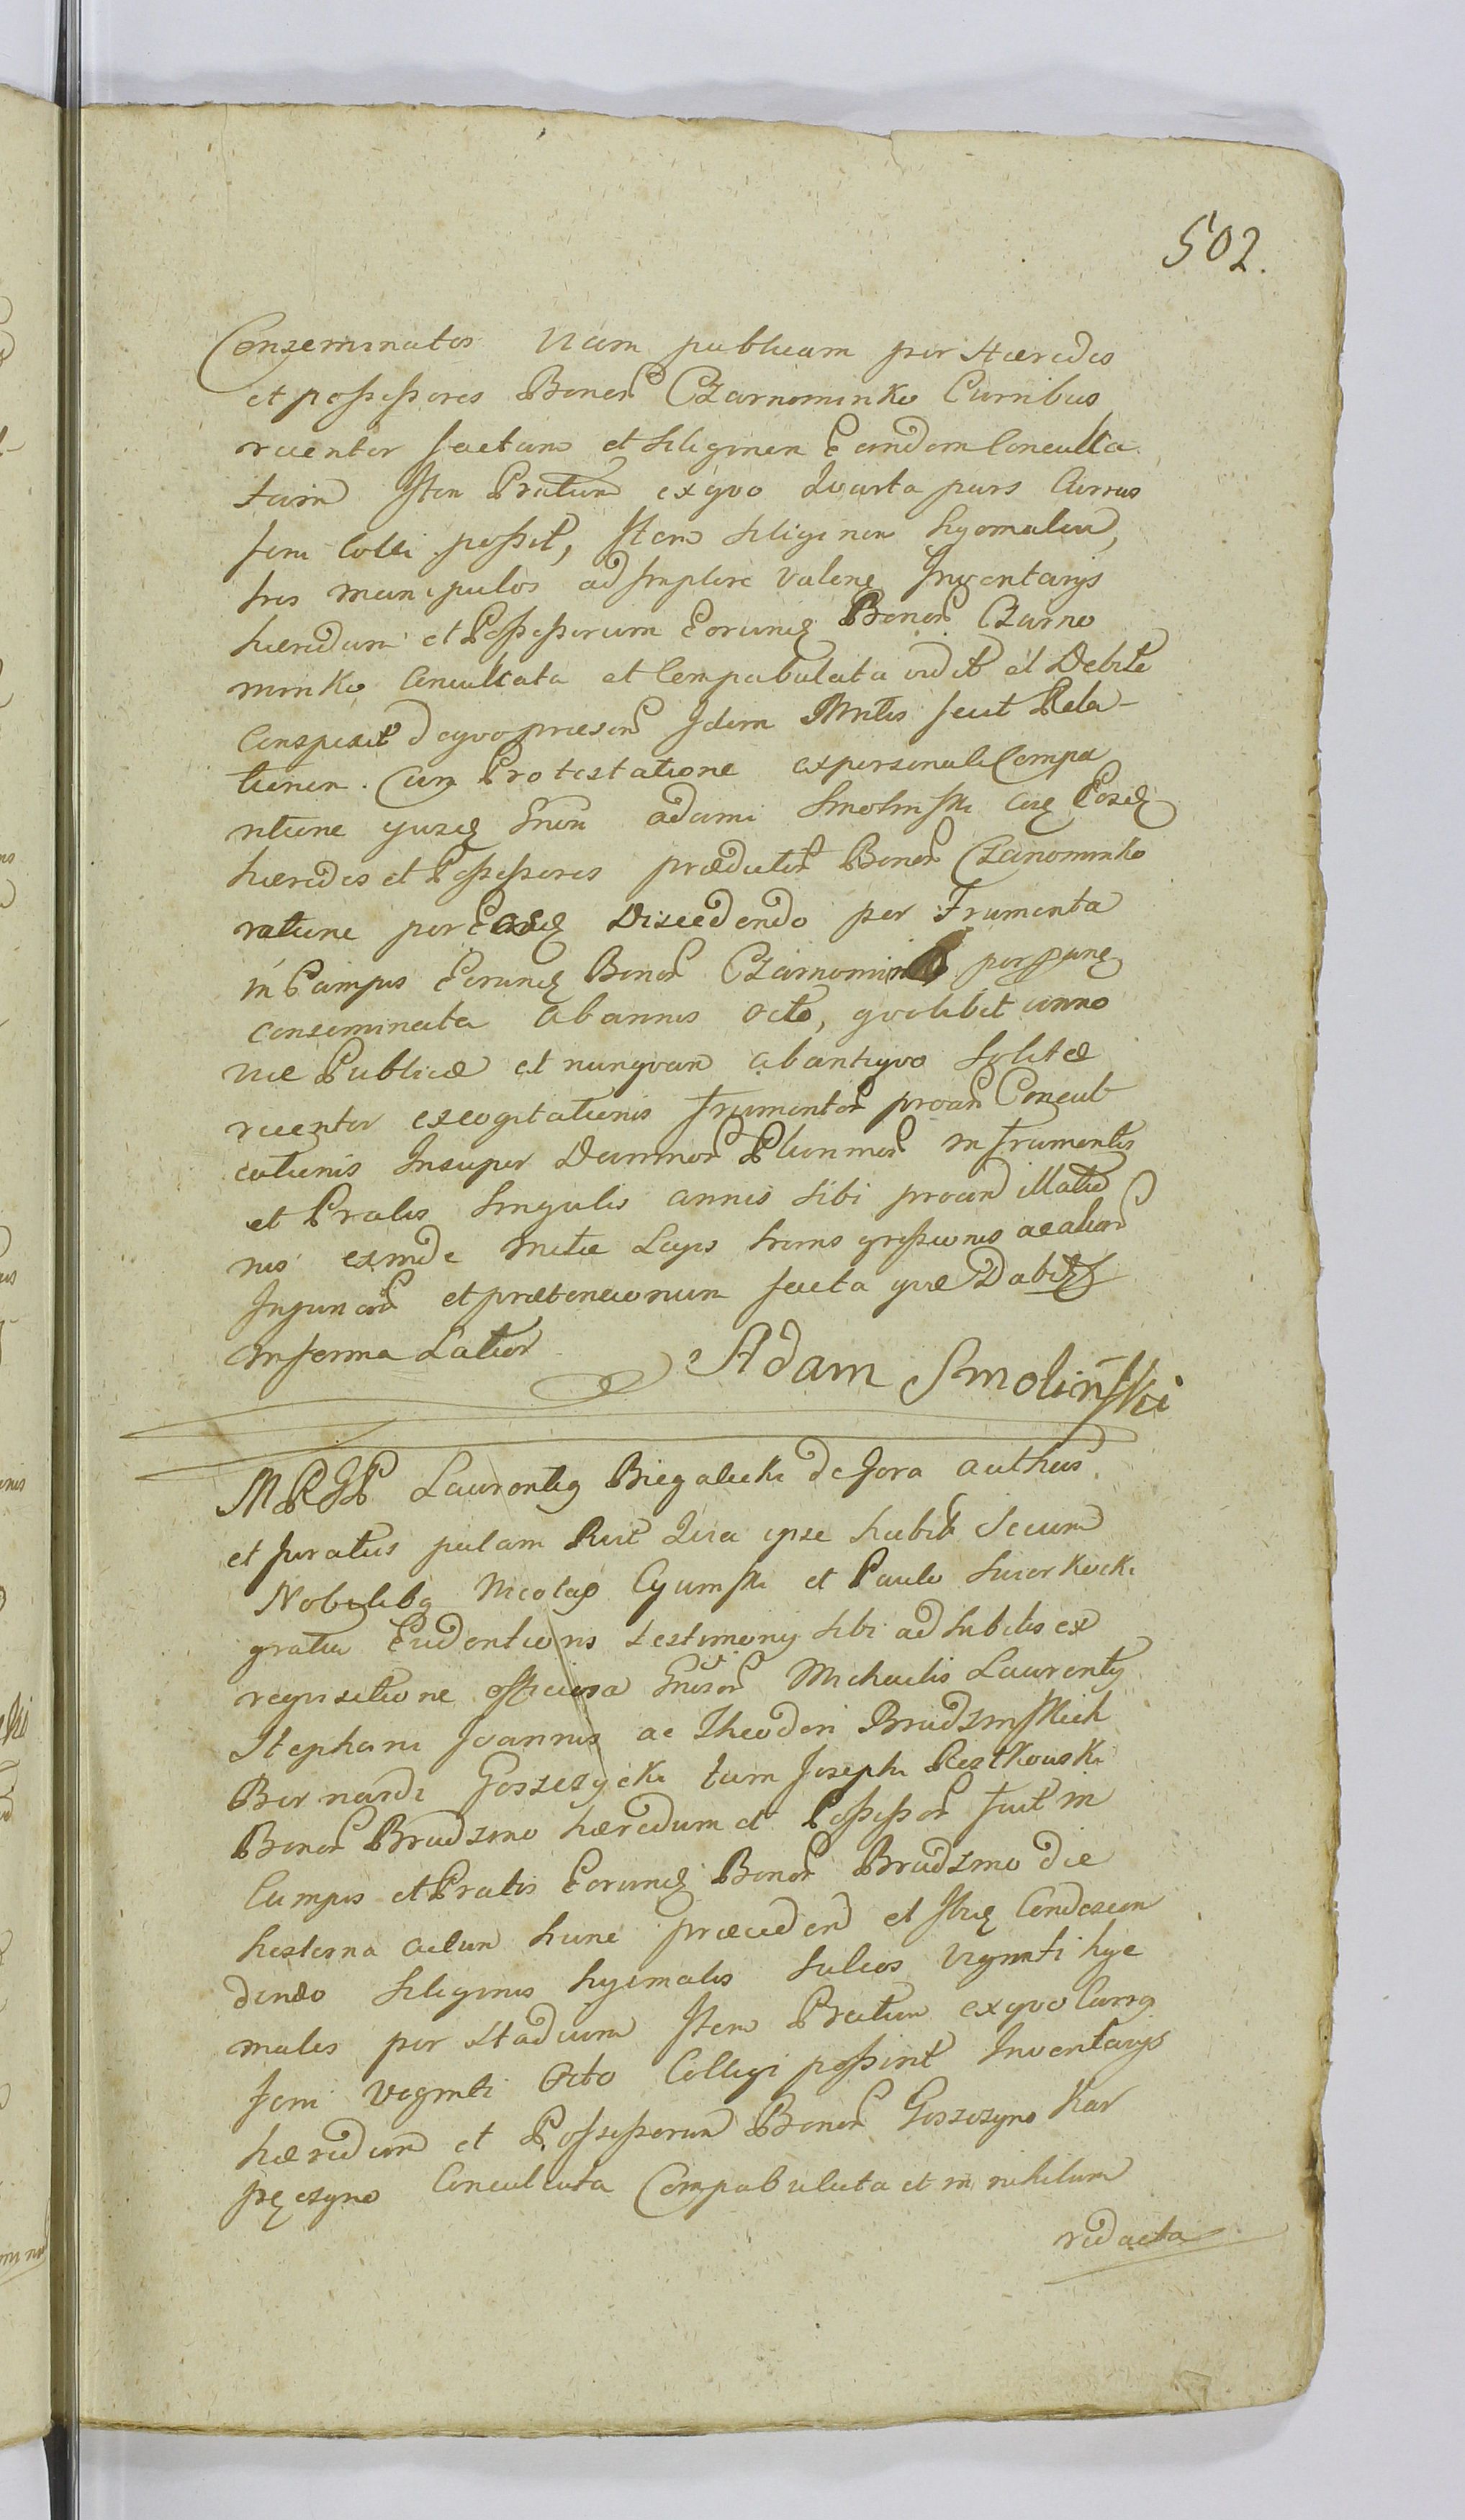 502.
Conseminatos viam publicam per Hæredes
et possessores Bonor Czarnominko Curribus
recenter factam et siliginem Eandem Conculca
tam Item Pratum exqvo Qvarta pars Currus
feni Colli possit, Item siliginem hyemalem,
tres manipulos adimplere valen Inventarijs
hæredum et Possessorum Eorund Bonor Czarno
minko Conculcata et Compabulata vidit et Debite
Conspexit deqvo præsen Idem Mntlis fecit Rela-
tionem. Cum Protestatione expersonali Compa
ritione ejusd Gnosi Adami Smolinski Eosd
hæredes et Possessores prædictor Bonor Czanominko
ratione per Eosd Discedendo per Frumenta
in Campis Eorund Bonor Czarnomin per
conseminata ab annis octo, qvolibet anno
viæ Publicæ et nunqvam abantiqvo solitæ
recenter excogitationis frumentor Concul
cationis Insuper Damnor Plurimor in frumentis
et Pratis singulis annis sibi illatio
nis exinde Metæ Legis transgressionis aealior
Injuriar et prætensionum facta qvæ Dabit
in forma Latior
Adam Smolinski
MRGP Laurenti Biegalecki de Jora authus
et juratus palam Rvit Qvia ipse habitis secum
Nobilib Nicolao Cyumski et Paulo Swierkocki
gratia Evidentioris testimonij sibi adhibitis ex
reqvisitione officiosa Gnosor Michaelis Laurentij
Stephani Joannis ac Theodori Brudzinskich
Bernardi Goszczycki tum Josephi Restkowski
Bonor Brudzino hæredum et Possessor fuit in
Campis et Pratis Eorund Bonor Brudzino die
hesterna actum hunc præceden et Ibid Condescen
dendo siliginis hyemalis sulcos viginti hye
males per stadium Item Pratum exqvo Curr
feni viginti octo Colligi possint Inventarijs
hæredum et Possessorum Bonor Goszczyno Kar
Conculcata Compabulata et in nihilum
redacta